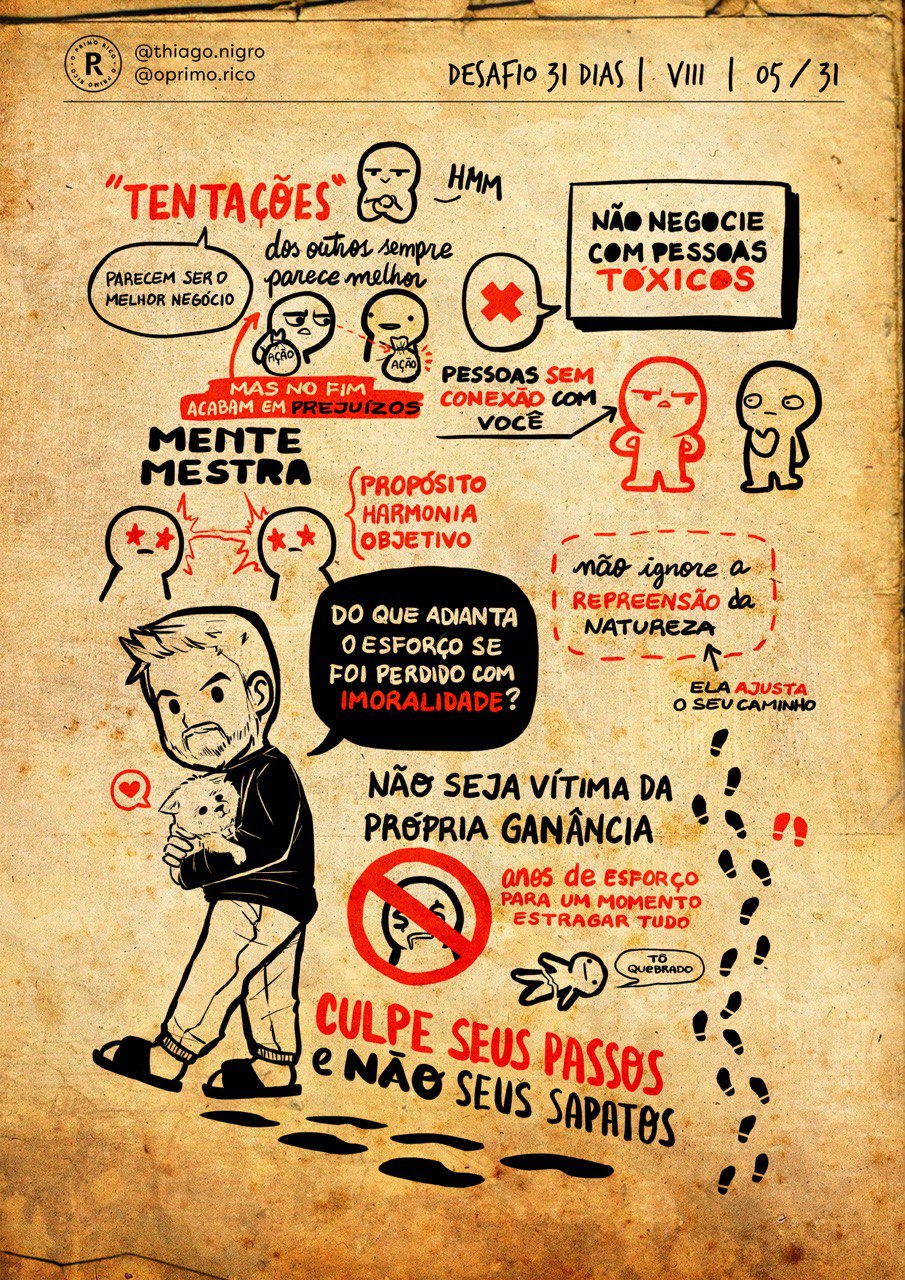 R
O PRIMO RICO • O PRIMO RICO •
@thiago.nigro
@oprimo.rico
DESAFIO 31 DIAS | VIII | 05 / 31
"TENTAÇÕES"
HMM
dos outros sempre
parece melhor
PARECEM SER O
MELHOR NEGÓCIO
AÇÃO
AÇÃO
MAS NO FIM
ACABAM EM PREJUÍZOS
NÃO NEGOCIE
COM PESSOAS
TÓXICOS
PESSOAS SEM
CONEXÃO COM
VOCÊ
MENTE
MESTRA
PROPÓSITO
HARMONIA
OBJETIVO
não ignore a
REPREENSÃO da
NATUREZA
ELA AJUSTA
O SEU CAMINHO
DO QUE ADIANTA
O ESFORÇO SE
FOI PERDIDO COM
IMORALIDADE?
NÃO SEJA VÍTIMA DA
PRÓPRIA GANÂNCIA
$ $
anos de ESFORÇO
PARA UM MOMENTO
ESTRAGAR TUDO
TÔ
QUEBRADO
CULPE SEUS PASSOS
e NÃO SEUS SAPATOS